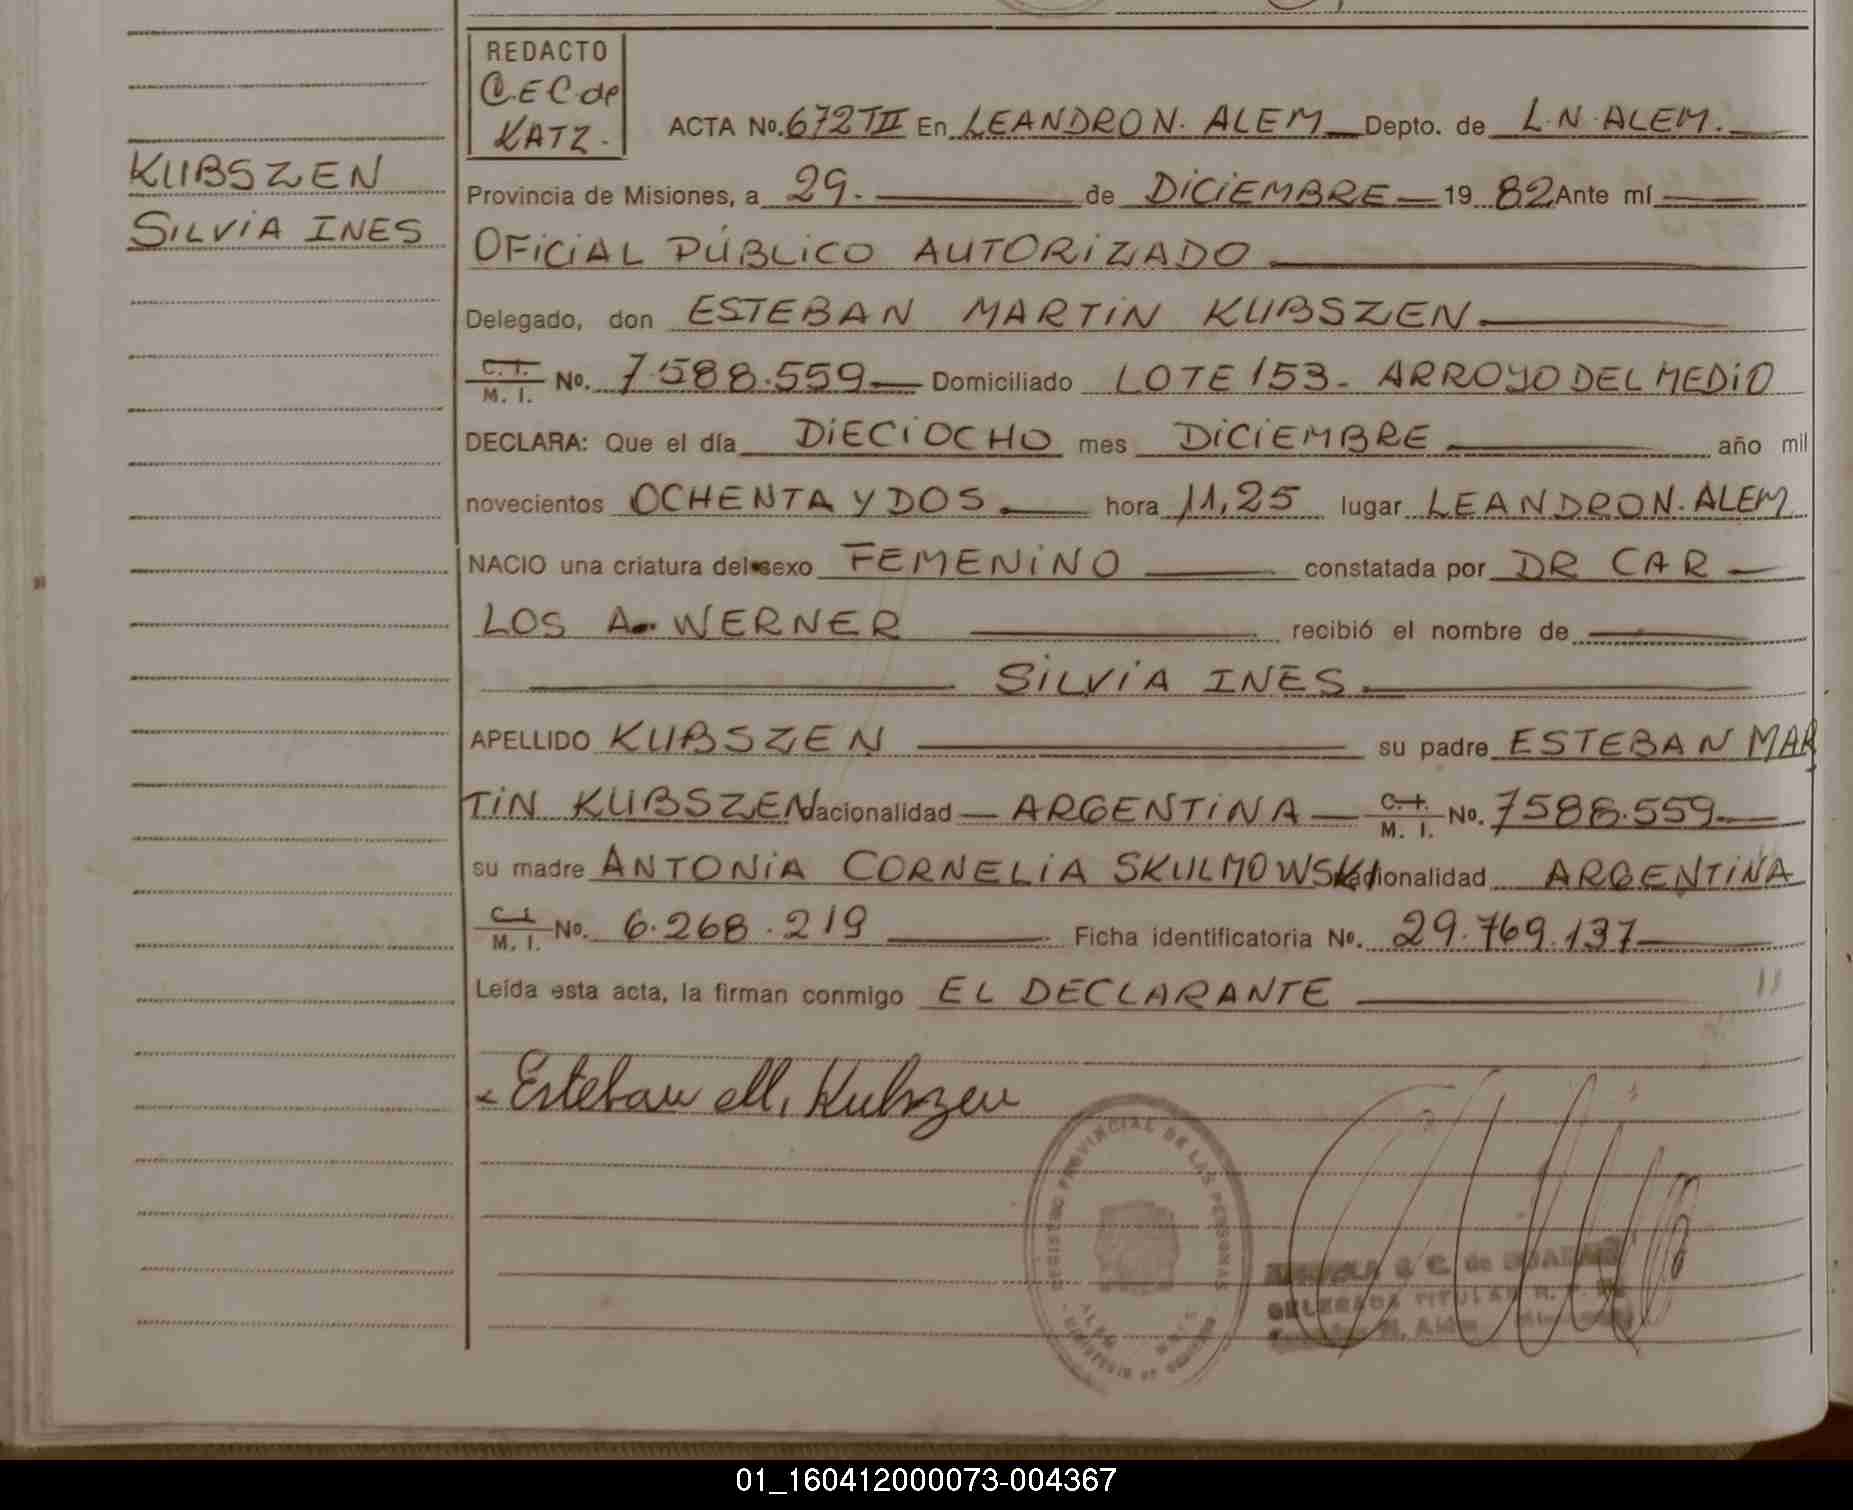 REDACTO
C.E.C. de
KATZ.
KUBSZEN
SILVIA INES
ACTA No. 672 TII En LEANDRO N. ALEM Depto. de L.N. ALEM.
Provincia de Misiones, a 29. de DICIEMBRE 19 82 Ante mí
OFICIAL PÚBLICO AUTORIZADO
Delegado, don ESTEBAN MARTIN KUBSZEN
C. I. M. I. No. 7.588.559 Domiciliado LOTE 153 - ARROYO DEL MEDIO
DECLARA: Que el día DIECIOCHO mes DICIEMBRE año mil
novecientos OCHENTA Y DOS hora 11,25 lugar LEANDRO N. ALEM
NACIO una criatura del sexo FEMENINO constatada por DR CAR
LOS A. WERNER recibió el nombre de
SILVIA INES
APELLIDO KUBSZEN su padre ESTEBAN MAR
TIN KUBSZEN Nacionalidad ARGENTINA C. I. M. I. No. 7588.559
su madre ANTONIA CORNELIA SKULMOWSKI Nacionalidad ARGENTINA
C. I. M. I. No. 6.268.219 Ficha identificatoria No. 29.769.137
Leída esta acta, la firman conmigo EL DECLARANTE
Esteban M. Kubszen
REGISTRO PROVINCIAL DE LAS PERSONAS
01_160412000073-004367